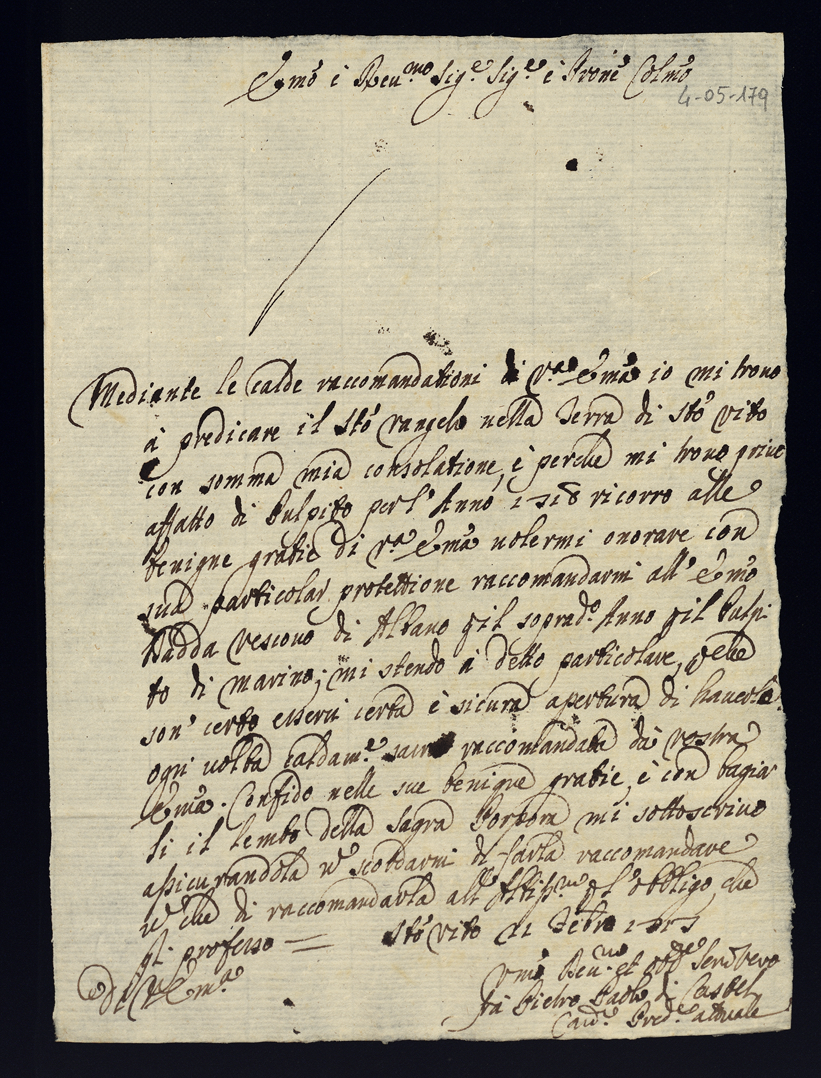 Emo è Reu.mo Sig.e Sig.e è Prone Colmo
4-05-179
Mediante le calde raccomandationi di V.a Ema io mi trovo
à predicare il Sto vangelo nella Terra di Sto Vito
con somma mia consolatione, è perche mi trovo privo
affatto di Pulpito per l'Anno 1718 ricorro alle
benigne gratie di V.a Ema volermi onorare con
sua particolar protettione raccomandarmi all' Emo
Dadda Vescovo di Albano p il soprad.o Anno p il Pulpi
to di Marino; mi stendo à detto particolare, perche
son' certo esservi certa è sicura apertura di haverlo
ogni volta caldam.e raccomandato da Vostra
Ema. Confido nelle sue benigne gratie, è con bagiar
li il lembo della Sagra Porpora mi sottoscrivo
assicurandola scordarmi di farla raccomandare
che di raccomandarla all' Altiss.mo p l'obbligo che
gli professo = Sto Vito Febro
Di V Em.a
Vmo Reu.mo et Serv vero
fra Pietro Paolo di Castel
Pred.re attuale